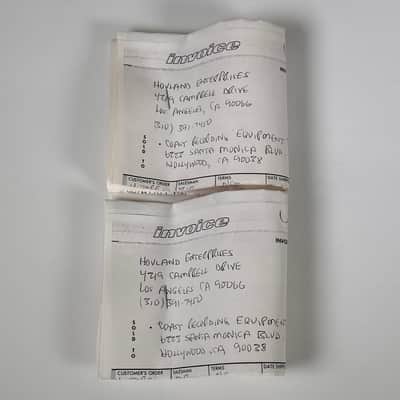 invoice
HOVLAND ENTERPRISES
4219 CAMPBELL DRIVE
LOS ANGELES, CA 90066
(310) 391-7450
SOLD TO
• COAST RECORDING EQUIPMENT
6223 SANTA MONICA BLVD
HOLLYWOOD, CA 90038
CUSTOMER'S ORDER SALESMAN TERMS DATE SHIPPED
invoice
INVOI
HOVLAND ENTERPRISES
4219 CAMPBELL DRIVE
LOS ANGELES CA 90066
(310) 391-7450
SOLD TO
• COAST RECORDING EQUIPMENT
6223 SANTA MONICA BLVD
HOLLYWOOD, CA 90038
CUSTOMER'S ORDER SALESMAN TERMS DATE SHIP